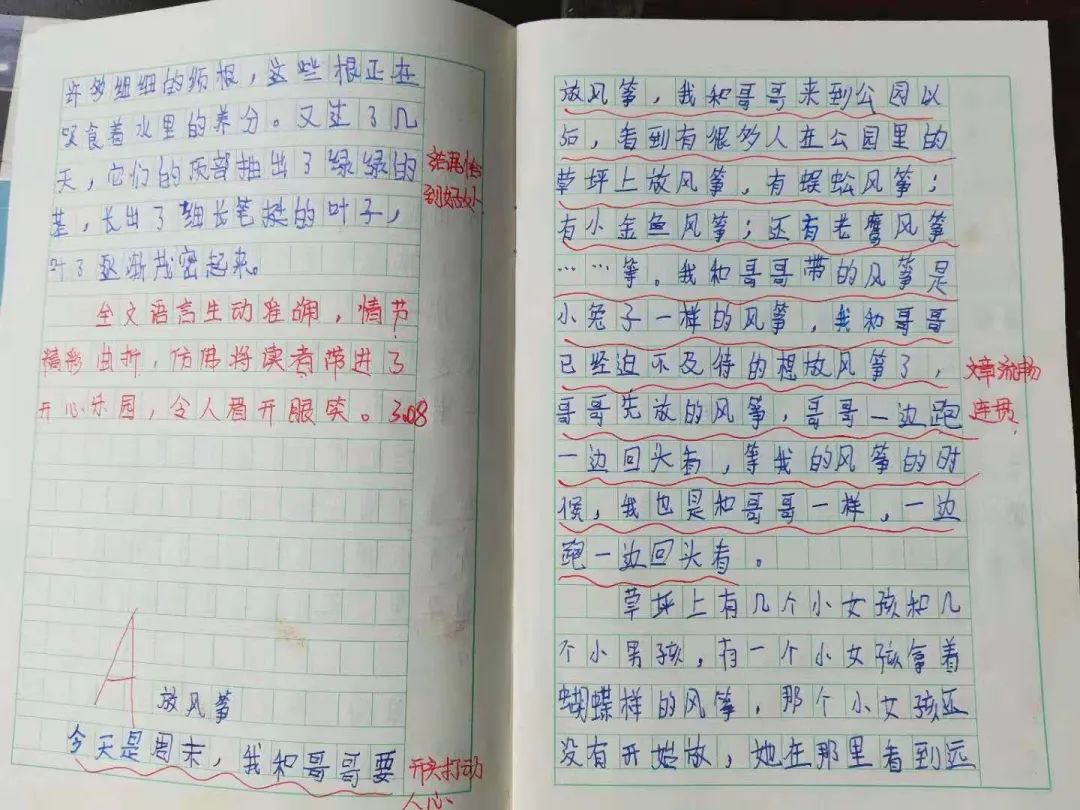 许多细细的须根，这些根正在
吸食着水里的养分。又过了几
天，它们的顶部抽出了绿绿的
茎，长出了细长笔挺的叶子，
叶子逐渐茂密起来。
到好处
全文语言生动准确，情节
精彩曲折，仿佛将读者带进了
开心乐园，令人眉开眼笑。3.08
A
放风筝
今天是周末，我和哥哥要
开头打动
人心
放风筝，我和哥哥来到公园以
后，看到有很多人在公园里的
草坪上放风筝，有蜈蚣风筝；
有小金鱼风筝；还有老鹰风筝
……等。我和哥哥带的风筝是
小兔子一样的风筝，我和哥哥
已经迫不及待的想放风筝了，
哥哥先放的风筝，哥哥一边跑
一边回头看，等我的风筝的时
候，我也是和哥哥一样，一边
跑一边回头看。
文章流畅
连贯
草坪上有几个小女孩和几
个小男孩，有一个小女孩拿着
蝴蝶样的风筝，那个小女孩还
没有开始放，她在那里看到远